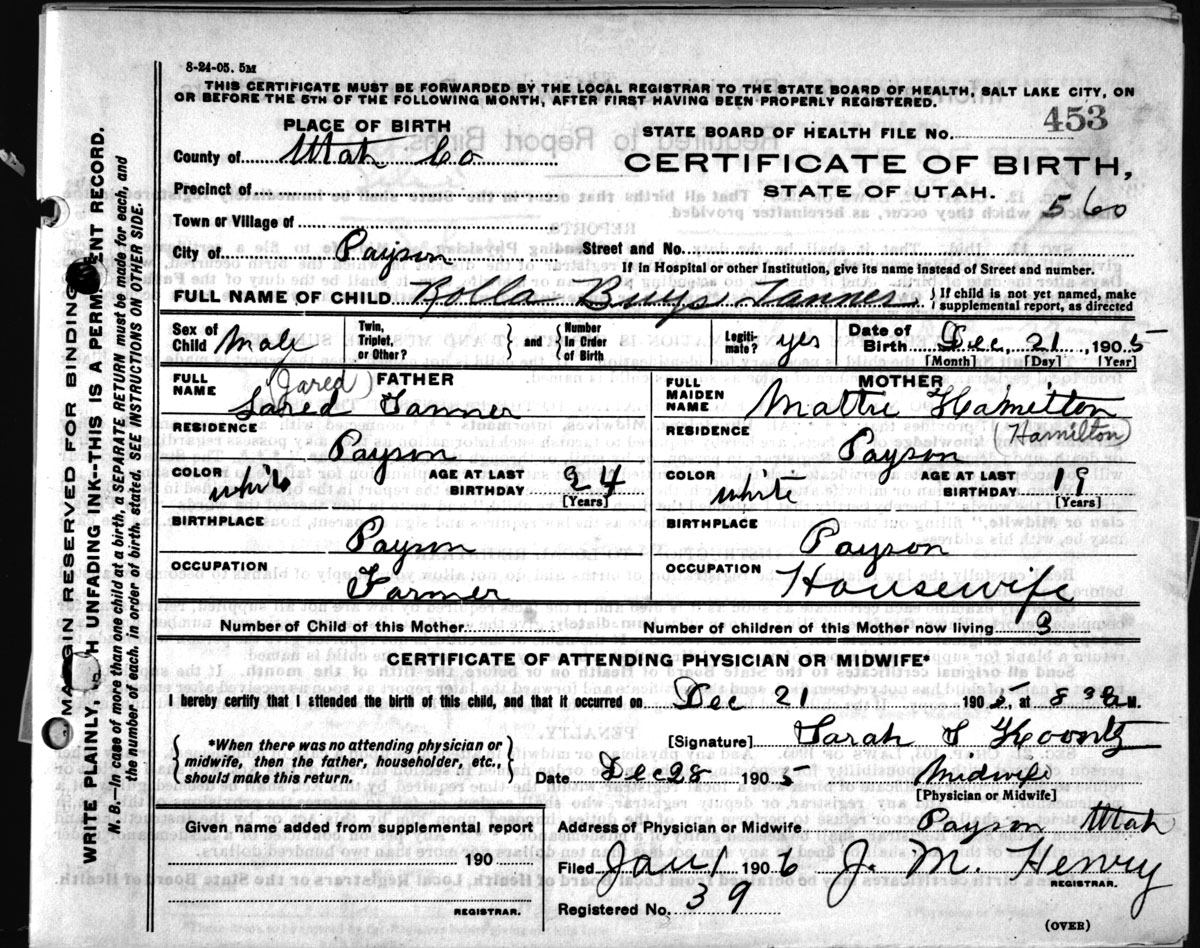 8-24-05. 5M
THIS CERTIFICATE MUST BE FORWARDED BY THE LOCAL REGISTRAR TO THE STATE BOARD OF HEALTH, SALT LAKE CITY, ON
OR BEFORE THE 5TH OF THE FOLLOWING MONTH, AFTER FIRST HAVING BEEN PROPERLY REGISTERED.
PLACE OF BIRTH
STATE BOARD OF HEALTH FILE NO. 453
County of Utah Co
CERTIFICATE OF BIRTH,
STATE OF UTAH.
Precinct of
560
Town or Village of
City of Payson Street and No.
If in Hospital or other Institution, give its name instead of Street and number.
FULL NAME OF CHILD Rolla Buys Tanner } If child is not yet named, make supplemental report, as directed
Sex of Child Male Twin, Triplet, or Other? } and { Number in Order of Birth Legiti-mate? yes Date of Birth Dec, 21, 1905
[Month] [Day] [Year]
FULL NAME (Jared) FATHER
Jared Tanner
FULL MAIDEN NAME MOTHER
Mattie Hamelton
RESIDENCE Payson
RESIDENCE (Hamilton)
Payson
COLOR white AGE AT LAST BIRTHDAY 24 [Years]
COLOR white AGE AT LAST BIRTHDAY 19 [Years]
BIRTHPLACE Payson
BIRTHPLACE Payson
OCCUPATION Farmer
OCCUPATION Housewife
Number of Child of this Mother Number of children of this Mother now living 3
CERTIFICATE OF ATTENDING PHYSICIAN OR MIDWIFE*
I hereby certify that I attended the birth of this child, and that it occurred on Dec 21 1905, at 8 30 a M.
{ *When there was no attending physician or midwife, then the father, householder, etc., should make this return. }
[Signature] Sarah S Koontz
Date Dec 28 1905 Midwife
[Physician or Midwife]
Given name added from supplemental report
190
REGISTRAR.
Address of Physician or Midwife Payson Utah
Filed Jan 1 1906 J. M. Henry
REGISTRAR.
Registered No. 39
(OVER)
MARGIN RESERVED FOR BINDING
WRITE PLAINLY, WITH UNFADING INK--THIS IS A PERMANENT RECORD.
N. B.—In case of more than one child at a birth, a SEPARATE RETURN must be made for each, and
the number of each, in order of birth, stated. SEE INSTRUCTIONS ON OTHER SIDE.